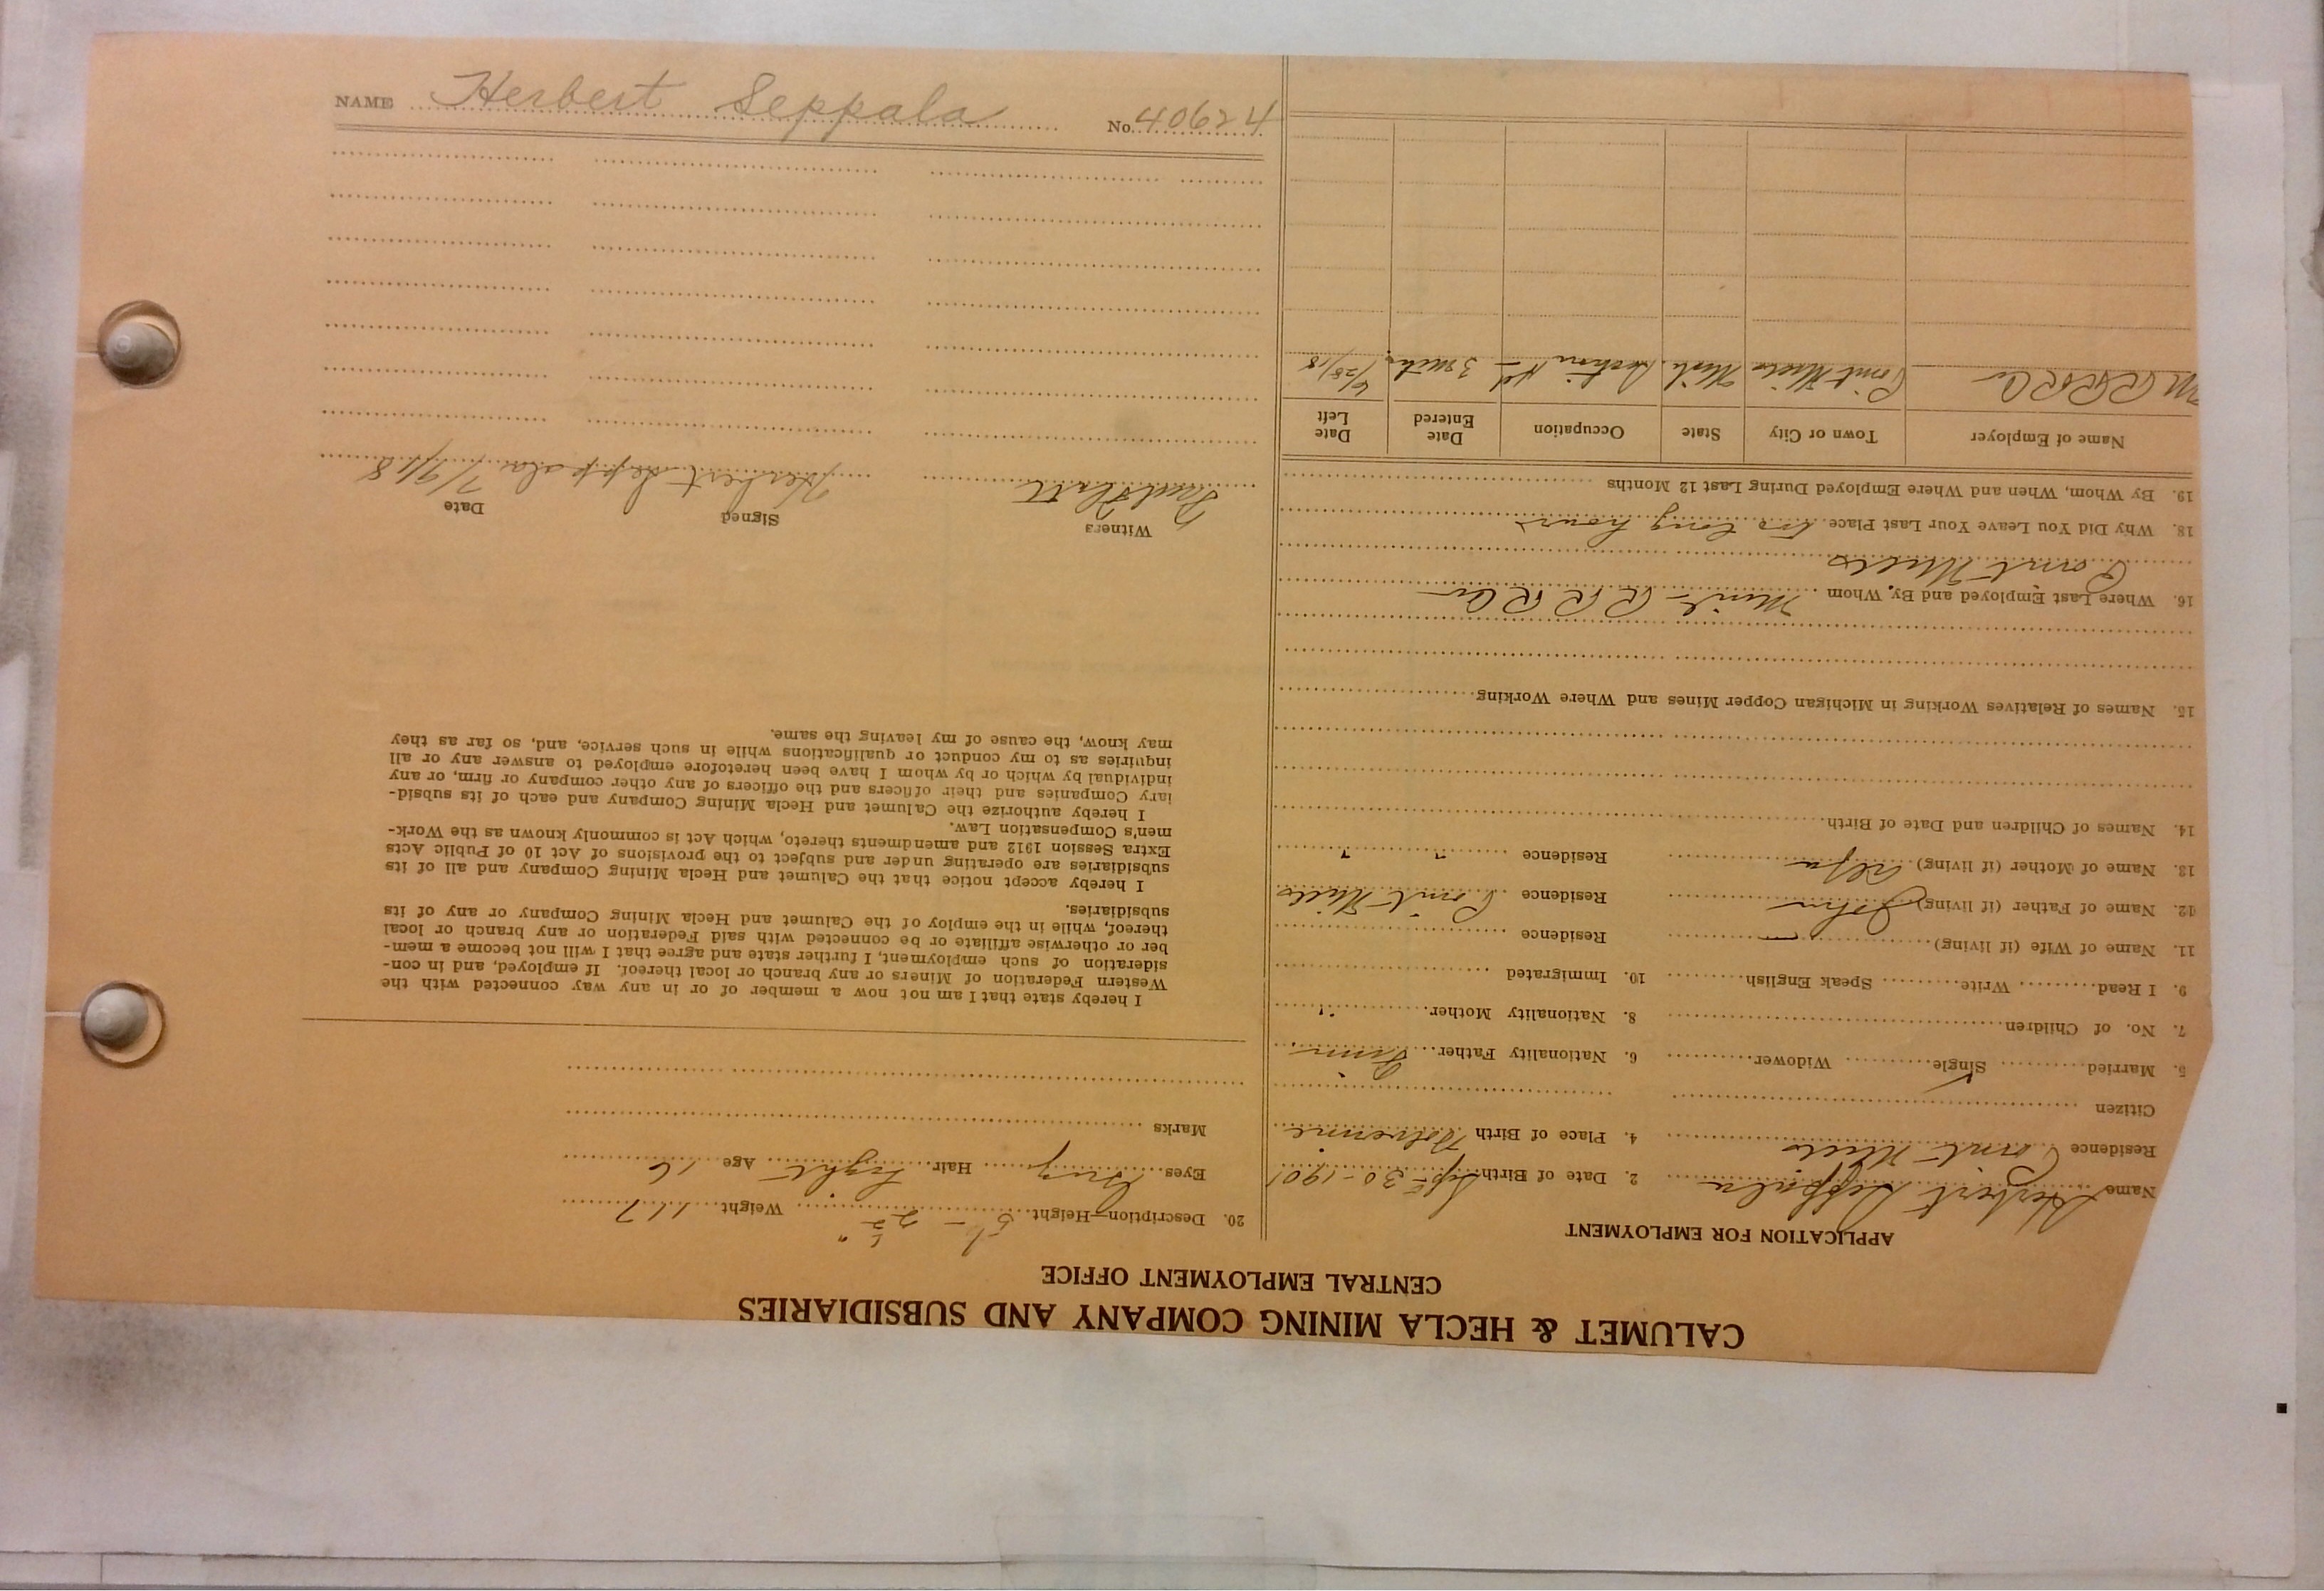 CALUMET & HECLA MINING COMPANY AND SUBSIDIARIES
CENTRAL EMPLOYMENT OFFICE
APPLICATION FOR EMPLOYMENT
Name Herbert Seppala 2. Date of Birth Sept 30-1901
Residence Point Mills 4. Place of Birth
Citizen
5. Married Single ✓ Widower 6. Nationality Father Finn
7. No. of Children 8. Nationality Mother "
9. I Read Write Speak English 10. Immigrated
11. Name of Wife (if living) — Residence
12. Name of Father (if living) John Residence Point Mills
13. Name of Mother (if living) Residence " "
14. Names of Children and Date of Birth
15. Names of Relatives Working in Michigan Copper Mines and Where Working
16. Where Last Employed and By Whom R R R Co
Point Mills
18. Why Did You Leave Your Last Place too long hours
19. By Whom, When and Where Employed During Last 12 Months
Name of Employer Town or City State Occupation Date Entered Date Left
M R R R Co Point Mills Mich. Section 3 6/28/18
20. Description—Height 5' - 2 1/2" Weight 117
Eyes Grey Hair Light Age 16
Marks
I hereby state that I am not now a member of or in any way connected with the
Western Federation of Miners or any branch or local thereof. If employed, and in con-
sideration of such employment, I further state and agree that I will not become a mem-
ber or otherwise affiliate or be connected with said Federation or any branch or local
thereof, while in the employ of the Calumet and Hecla Mining Company or any of its
subsidiaries.
I hereby accept notice that the Calumet and Hecla Mining Company and all of its
subsidiaries are operating under and subject to the provisions of Act 10 of Public Acts
Extra Session 1912 and amendments thereto, which Act is commonly known as the Work-
men's Compensation Law.
I hereby authorize the Calumet and Hecla Mining Company and each of its subsid-
iary Companies and their officers and the officers of any other company or firm, or any
individual by which or by whom I have been heretofore employed to answer any or all
inquiries as to my conduct or qualifications while in such service, and, so far as they
may know, the cause of my leaving the same.
Witness Signed Date
Herbert Seppala 7/9/18
NAME Herbert Seppala No. 40624